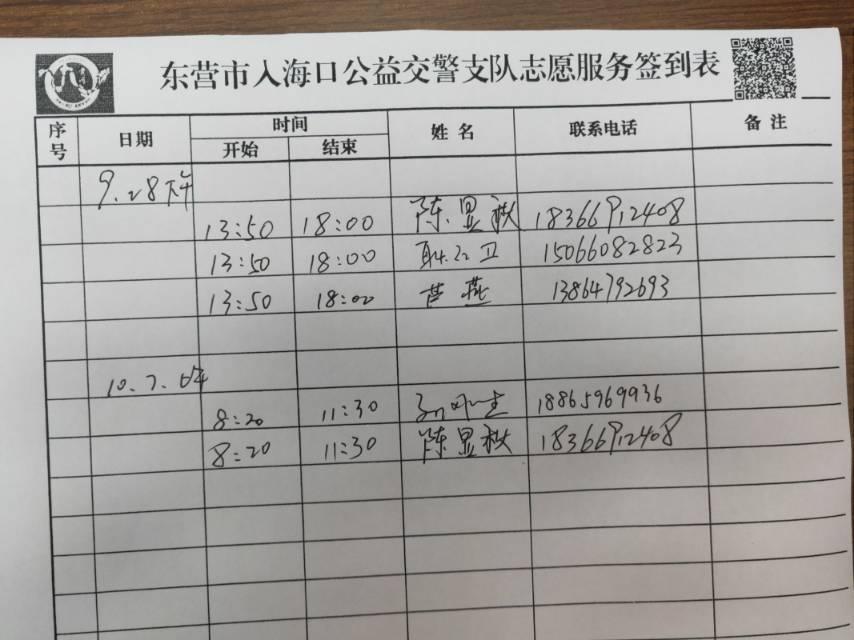 东营市入海口公益交警支队志愿服务签到表
序号 日期 时间 姓名 联系电话 备注
开始 结束
9.28下午
13:50 18:00 陈显秋 18366912408
13:50 18:00 耿红卫 15066082823
13:50 18:00 芦燕 13864792693
10.7.上午
8:20 11:30 18865969936
8:20 11:30 陈显秋 18366912408